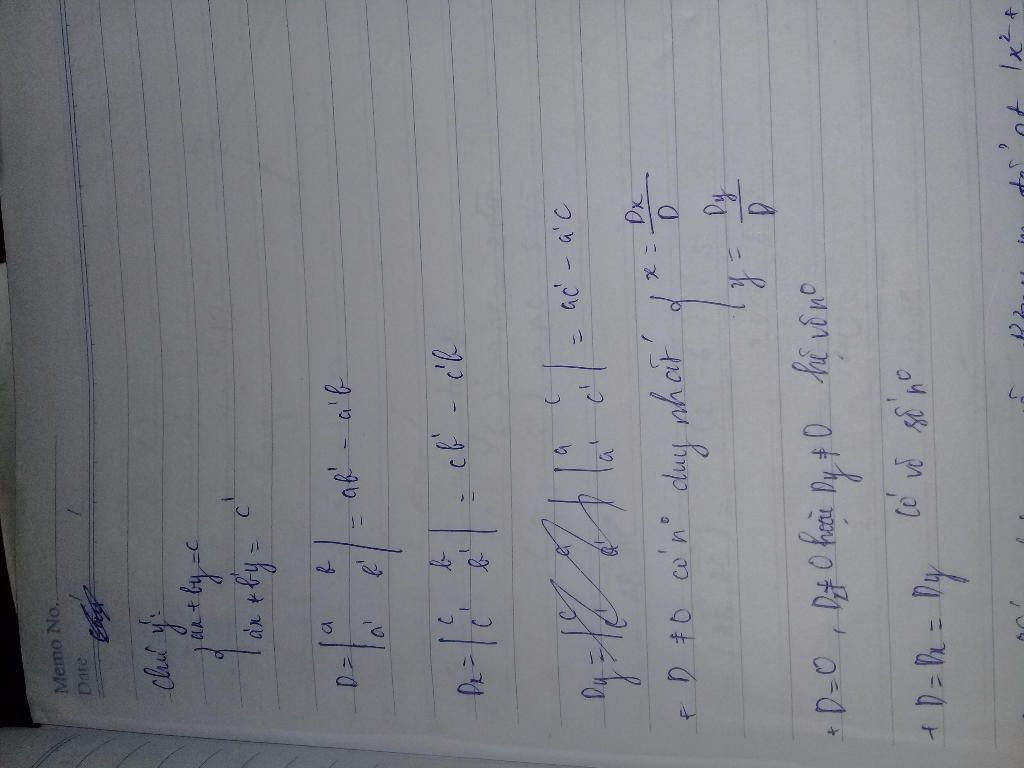 Memo No.
Date / /
Chú ý:
{ ax + by = c
a'x + b'y = c'
D = | a b
a' b' | = ab' - a'b
Dx = | c b
c' b' | = cb' - c'b
Dy = | a c
a' c' | = ac' - a'c
+ D ≠ 0 có n° duy nhất { x = Dx/D
y = Dy/D
+ D = 0, Dx ≠ 0 hoặc Dy ≠ 0 hệ vô n°
+ D = Dx = Dy có vô số n°